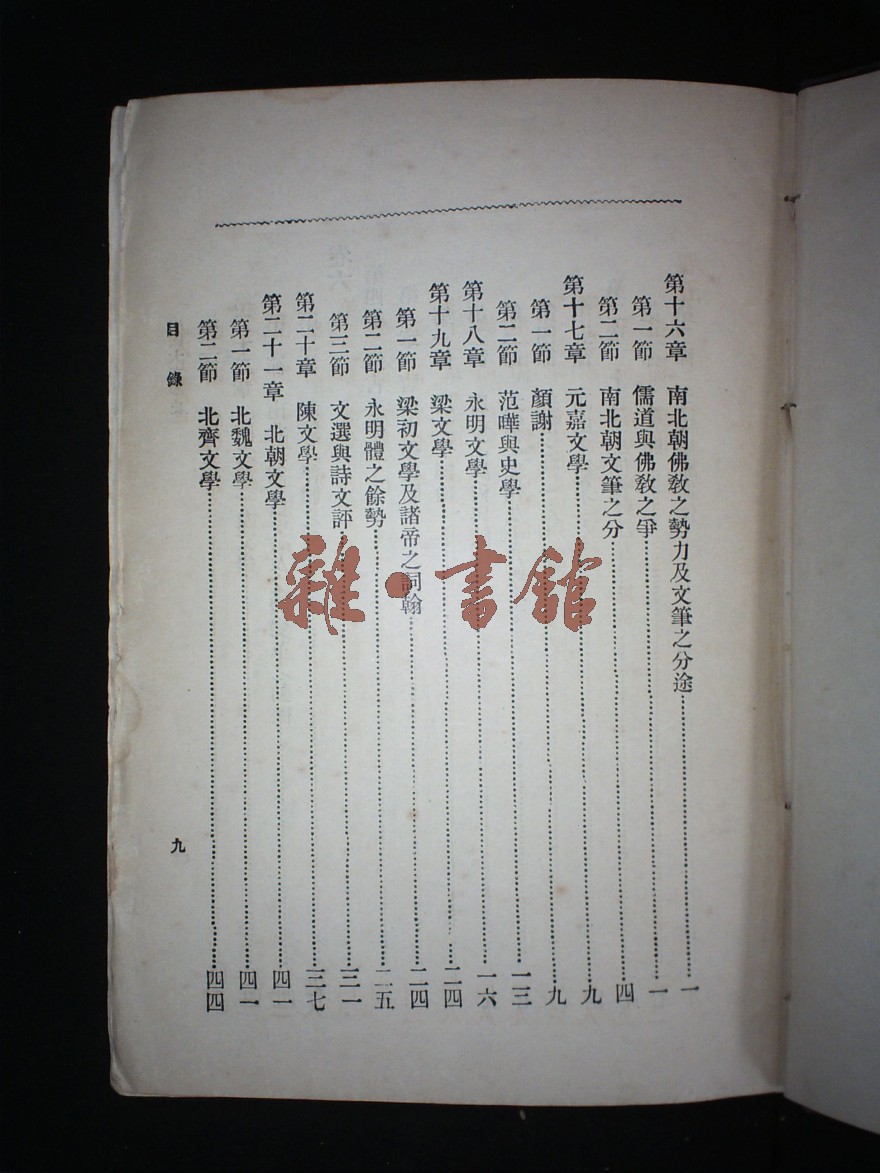 第十六章 南北朝佛教之勢力及文筆之分途……一
第一節 儒道與佛教之爭……一
第二節 南北朝文筆之分……四
第十七章 元嘉文學……九
第一節 顏謝……九
第二節 范曄與史學……一三
第十八章 永明文學……一六
第十九章 梁文學……二四
第一節 梁初文學及諸帝之詞翰……二四
第二節 永明體之餘勢……二五
第三節 文選與詩文評……三一
第二十章 陳文學……三七
第二十一章 北朝文學……四一
第一節 北魏文學……四一
第二節 北齊文學……四四
目錄 九
雜·書館